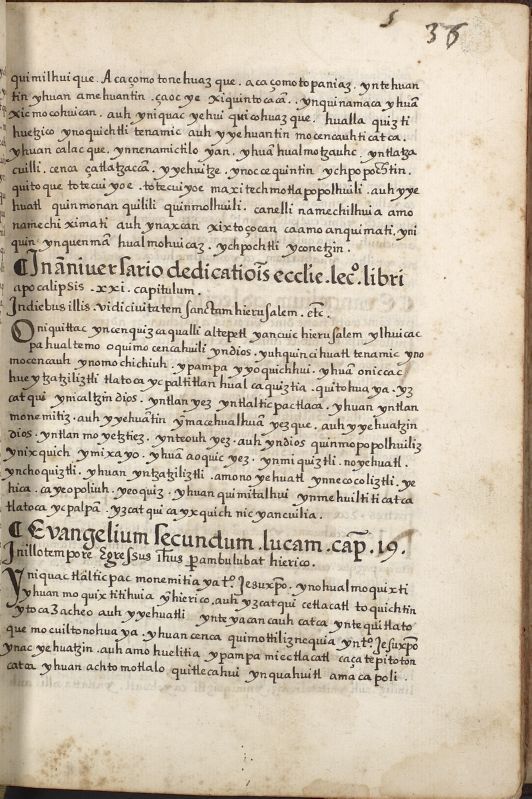 36
quimilhui que. Acaçomo tonehuaz que. acaçomo topaniaz. yntehuan
tin yhuan amehuantin. çaoc ye xiquintocaca. ynquinamaca yhuā
xicmocohuican. auh yniquac yehui quicohuazque. hualla quizti
huetzico ynoquichtli tenamic auh yyehuantin mocencauhticatca.
yhuan calac que. ynnenamictiloyan. yhuā hualmotzauhc. yntlatza
cuilli. cenca çatlatzacā. yyehuitze. ynoccequintin ychpopochtin.
quitoque totecuiyoe. totecuiyoe maxitechmotlapopolhuili. auh yye
huatl quinmonanquilili quinmolhuili. canelli namechilhuia amo
namechiximati auh ynaxcan xixtoçocan caamo anquimati. yni
quin ynquenman hualmohuicaz. ychpochtli yconetzin.
¶ In āniversario dedicatiōis ecclie. lecº. libri
apocalipsis. xxi. capitulum.
In diebus illis. vidi civitatem sanctam hierusalem. etc.
Oniquittac yncenquizcaqualli altepetl yancuic hierusalem ylhuicac
pa hualtemo oquimocencahuili yndios. yuhquin cihuatl tenamic yno
mocencauh ynomochichiuh. ypampa yyoquichhui. yhuā oniccac
huey tzatziliztli tlatoca ycpaltitlan hualcaquiztia. quitohuaya. yz
catqui ynicaltzin dios. yntlan yez yntlalticpactlaca. yhuan yntlan
monemitiz. auh yyehuātin ymacehualhuā yezque. auh yyehuatzin
dios. yntlanmoyetztiez. ynteouh yez. auh yndios quinmopopolhuiliz
ynixquich ymixayo. yhuā aoquic yez. ynmiquiztli. noyehuatl.
ynchoquiztli. yhuan yntzatziliztli. amono yehuatl ynnecocoliztli. ye
hica. cayeopoliuh. yeoquiz. yhuan quimitalhui ynmehuiltiticatca
tlatoca ycpalpā. yzcatqui cayxquich nicyancuilia.
¶ Evangelium secundum. lucam. cap. 19.
In illo tempore Egressus iħus perambulabat hierico.
Yniquac tlalticpac monemitiaya tº. Jesuxp̄o. ynohualmoquixti
yhuan moquixtitihuia yhierico. auh yzcatqui cetlacatl toquichtin
ytoca Zacheo auh yyehuatli ynteyacancauhcatca yntequitlato
que mocuiltonohuaya. yhuan cenca quimottiliznequia yntº. Jesuxp̄o
ynac yehuatzin. auh amo huelitia ypampa miectlacatl caçatepitoton
catca yhuan achtomotlalo quitlecahui ynquahuitl amacapoli.